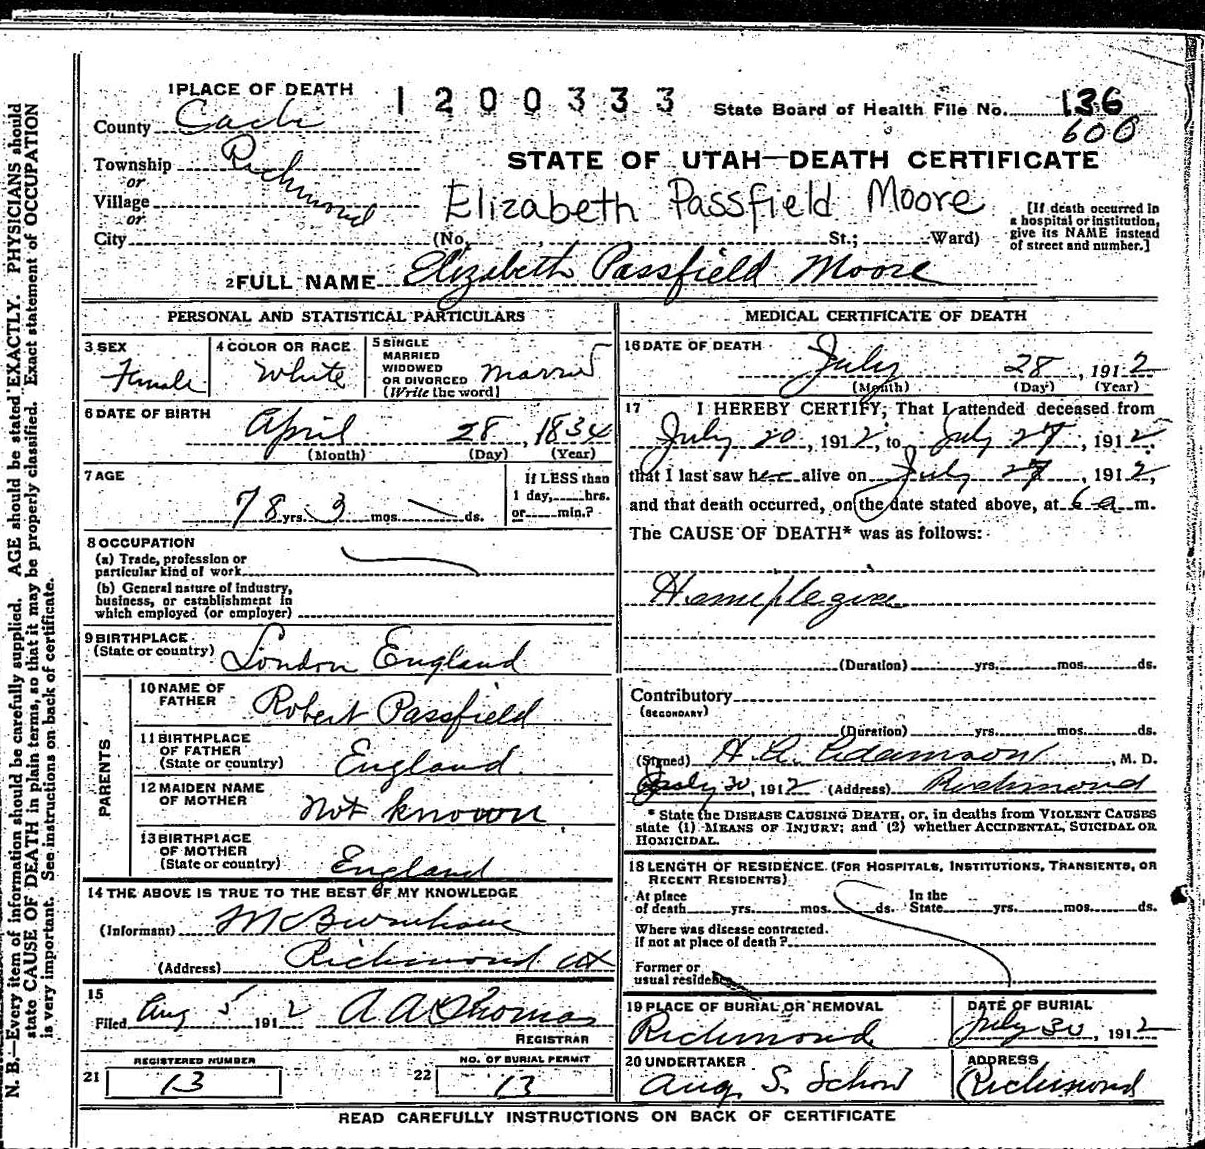 1 PLACE OF DEATH
1200333
State Board of Health File No. 136
600
County Cache
Township Richmond
or
Village
or
City
STATE OF UTAH—DEATH CERTIFICATE
Elizabeth Passfield Moore
(No. St.; Ward)
[If death occurred in
a hospital or institution,
give its NAME instead
of street and number.]
2 FULL NAME Elizabeth Passfield Moore
PERSONAL AND STATISTICAL PARTICULARS
3 SEX
Female
4 COLOR OR RACE
White
5 SINGLE
MARRIED
WIDOWED
OR DIVORCED
(Write the word)
Married
6 DATE OF BIRTH
April 28, 1834
(Month) (Day) (Year)
7 AGE
78 yrs. 3 mos. ds.
If LESS than
1 day, hrs.
or min.?
8 OCCUPATION
(a) Trade, profession or
particular kind of work
(b) General nature of industry,
business, or establishment in
which employed (or employer)
9 BIRTHPLACE
(State or country)
London England
PARENTS
10 NAME OF
FATHER
Robert Passfield
11 BIRTHPLACE
OF FATHER
(State or country)
England
12 MAIDEN NAME
OF MOTHER
Not known
13 BIRTHPLACE
OF MOTHER
(State or country)
England
14 THE ABOVE IS TRUE TO THE BEST OF MY KNOWLEDGE
(Informant)
(Address) Richmond Ut
15
Filed Aug 5 1912 A A Thomas
REGISTRAR
REGISTERED NUMBER
21 13
NO. OF BURIAL PERMIT
22 13
MEDICAL CERTIFICATE OF DEATH
16 DATE OF DEATH
July 28, 1912
(Month) (Day) (Year)
17 I HEREBY CERTIFY, That I attended deceased from
July 20, 1912, to July 27, 1912,
that I last saw her alive on July 27, 1912,
and that death occurred, on the date stated above, at 6 a m.
The CAUSE OF DEATH* was as follows:
Hemeplegia
(Duration) yrs. mos. ds.
Contributory
(SECONDARY)
(Duration) yrs. mos. ds.
(Signed) H. A. Adamson, M. D.
July 30, 1912 (Address) Richmond
* State the DISEASE CAUSING DEATH, or, in deaths from VIOLENT CAUSES
state (1) MEANS OF INJURY; and (2) whether ACCIDENTAL, SUICIDAL OR
HOMICIDAL.
18 LENGTH OF RESIDENCE (FOR HOSPITALS, INSTITUTIONS, TRANSIENTS, OR
RECENT RESIDENTS)
At place
of death yrs. mos. ds.
In the
State yrs. mos. ds.
Where was disease contracted,
if not at place of death?
Former or
usual residence
19 PLACE OF BURIAL OR REMOVAL
Richmond
DATE OF BURIAL
July 30, 1912
20 UNDERTAKER
Aug. S. Schow
ADDRESS
Richmond
READ CAREFULLY INSTRUCTIONS ON BACK OF CERTIFICATE
N. B.—Every item of information should be carefully supplied. AGE should be stated EXACTLY. PHYSICIANS should
state CAUSE OF DEATH in plain terms, so that it may be properly classified. Exact statement of OCCUPATION
is very important. See instructions on back of certificate.